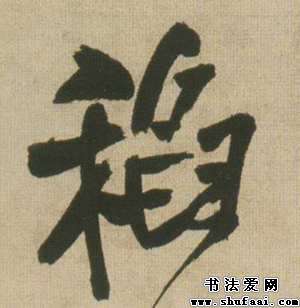 稻
书法爱网
www.shufaai.com